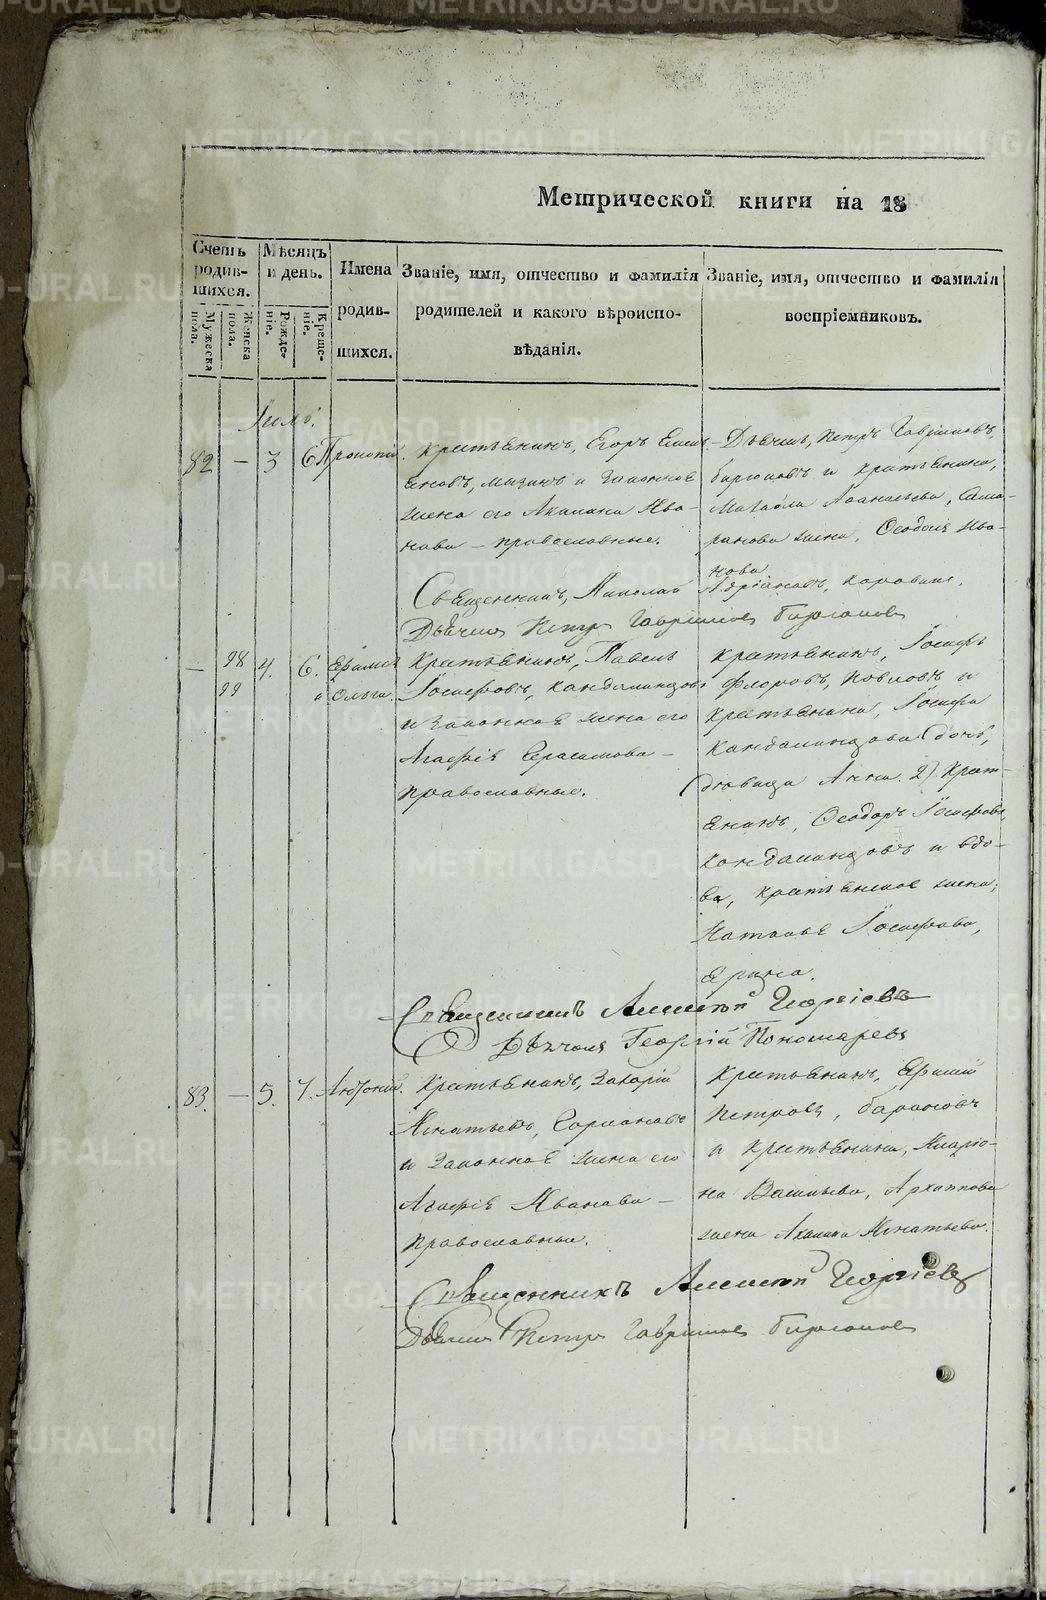 Метрической книги на 18
Счетъ родив-шихся.
Мужеска пола.
Женска пола.
Мѣсяцъ и день.
Рожде-ніе.
Креще-ніе.
Имена родив-шихся.
Званіе, имя, отчество и фамилія
родителей и какого вѣроиспо-
вѣданія.
Званіе, имя, отчество и фамилія
воспріемниковъ.
Іюль.
82 — 3 6 Прокопій.
Крестьянинъ, Егоръ
и законная
жена его Акилина Ива-
нова — православные.
Дьячекъ, Петръ Гавриловъ,
Бирюковъ и крестьянина,
Михаила Аѳанасьева,
жена, Ѳеодосія Ива-
нова
Священникъ, Николай Адріановъ, Коровинъ.
Дьячекъ Петръ Гавриловъ Бирюковъ
— 98 99 4. 6. и Ольга.
Крестьянинъ, Павелъ
Іосифовъ, Кандалинцовъ
и законная жена его
Агафія Герасимова —
православные.
Крестьянинъ, Іосифъ
Фроловъ, и
крестьянина, Іосифа
Кандалинцова дочь,
дѣвица Анна. 2) Крест-
янинъ, Ѳеодоръ Іосифовъ,
Кандалинцовъ и вдо-
ва, крестьянская жена,
Наталья Іосифова,
Священникъ Алексѣй Георгіевъ
Дьячекъ Георгій Пономаревъ
83. — 5. 7. Антоній.
Крестьянинъ, Захарій
Игнатьевъ,
и законная жена его
Агафія Иванова —
православныи.
Крестьянинъ, Ефимій
Петровъ, Барановъ
и крестьянина, Иларіо-
на Васильева, Архиппова
жена Акилина Игнатьева.
Священникъ Алексѣй Георгіевъ
Дьячекъ Петръ Гавриловъ Бирюковъ
METRIKI.GASO-URAL.RU